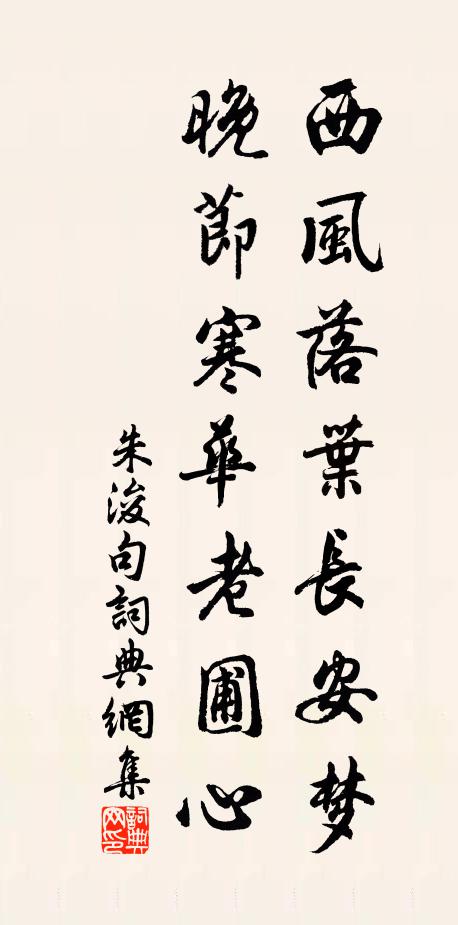 西風落葉長安梦
晚節寒華老圃心
朱浚句詞典網集
詞典网印